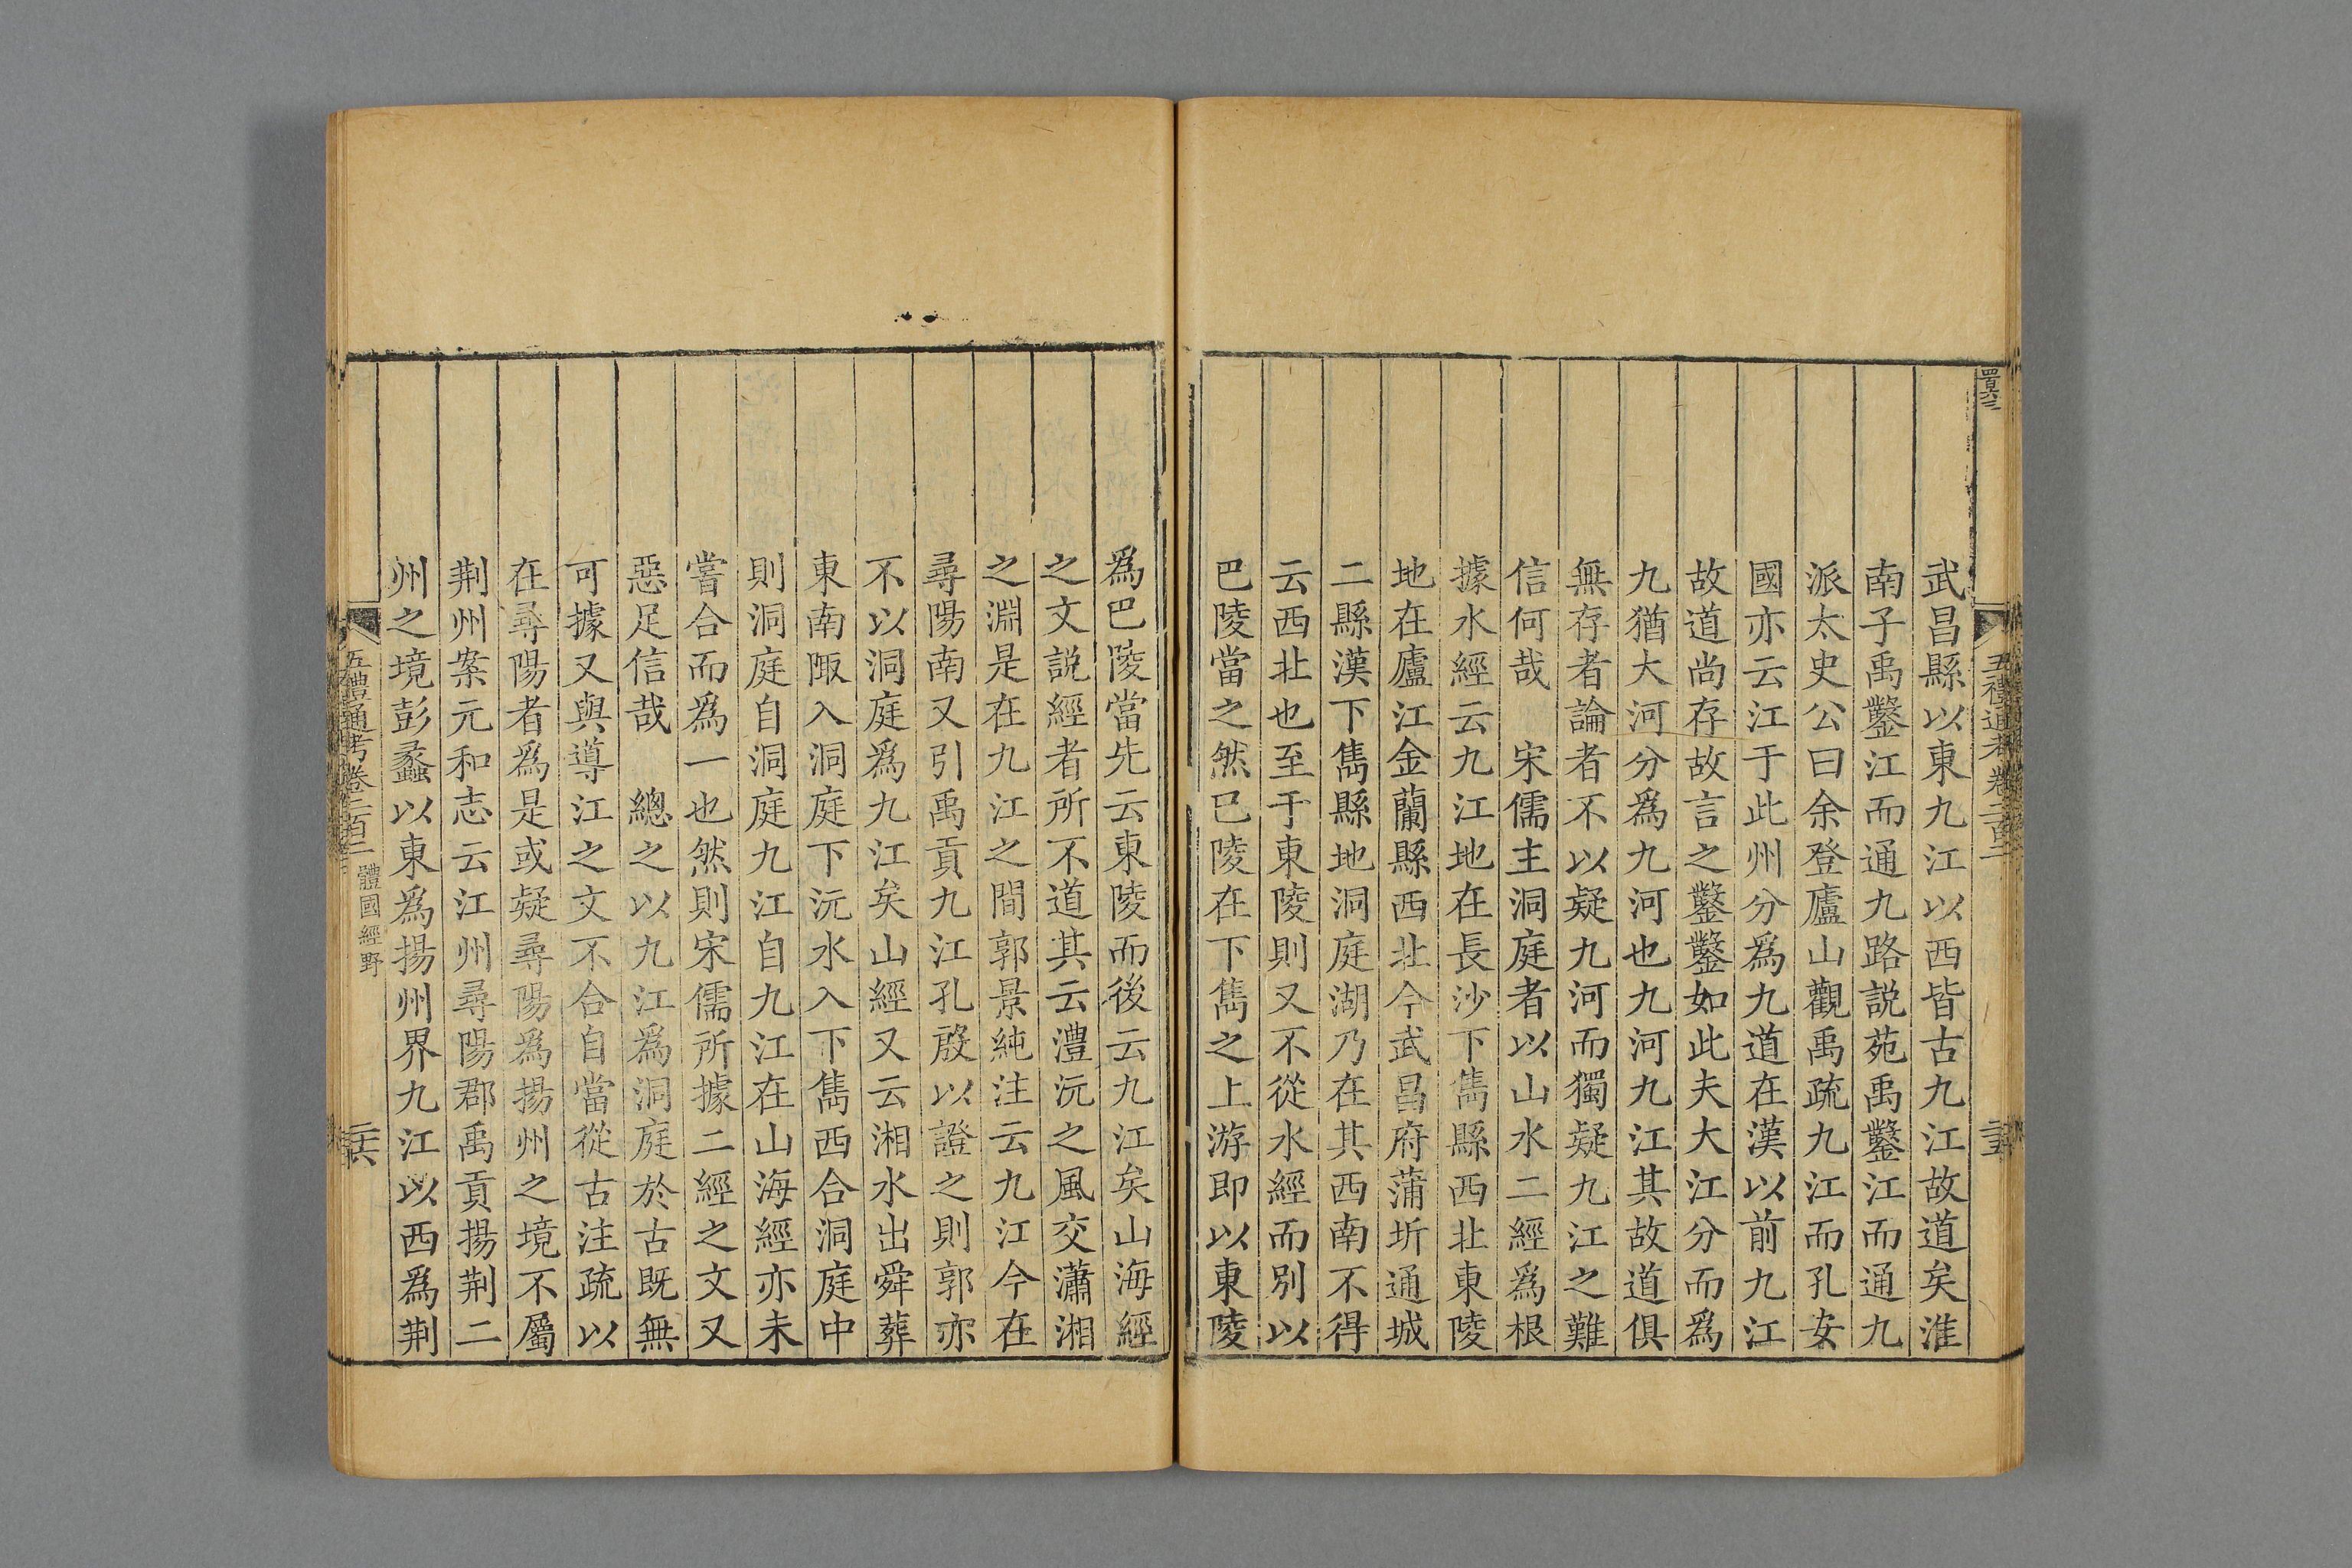 武昌縣以東九江以西皆古九江故道矣淮
南子禹鑿江而通九路説苑禹鑿江而通九
派太史公曰余登廬山觀禹疏九江而孔安
國亦云江于此州分爲九道在漢以前九江
故道尚存故言之鑿鑿如此夫大江分而爲
九猶大河分爲九河也九河九江其故道俱
無存者論者不以疑九河而獨疑九江之難
信何哉　宋儒主洞庭者以山水二經爲根
據水經云九江地在長沙下雋縣西北東陵
地在廬江金蘭縣西北今武昌府蒲圻通城
二縣漢下雋縣地洞庭湖乃在其西南不得
云西北也至于東陵則又不從水經而別以
巴陵當之然巴陵在下雋之上游即以東陵
五禮通考卷二百一
爲巴陵當先云東陵而後云九江矣山海經
之文説經者所不道其云澧沅之風交瀟湘
之淵是在九江之間郭景純注云九江今在
尋陽南又引禹貢九江孔殷以證之則郭亦
不以洞庭爲九江矣山經又云湘水出舜葬
東南陬入洞庭下沅水入下雋西合洞庭中
則洞庭自洞庭九江自九江在山海經亦未
嘗合而爲一也然則宋儒所據二經之文又
惡足信哉　總之以九江爲洞庭於古既無
可據又與導江之文不合自當從古注疏以
在尋陽者爲是或疑尋陽爲揚州之境不屬
荆州案元和志云江州尋陽郡禹貢揚荆二
州之境彭蠡以東爲揚州界九江以西爲荆
五禮通考卷二百一 體國經野 二六